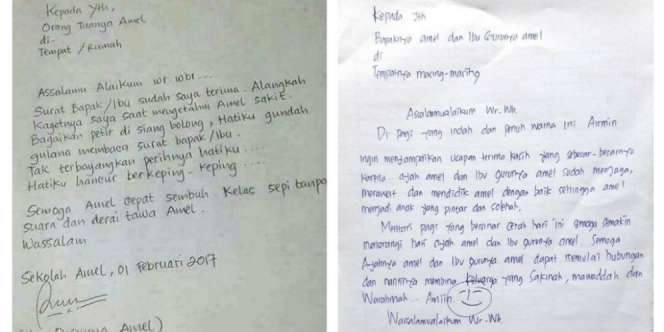 Kepada Yth,
Orang Tuanya Amel
di-
Tempat / Rumah
Assalamu Alaikum wr wbr ...
Surat Bapak/Ibu sudah saya terima. Alangkah
kagetnya saya saat mengetahui Amel sakit.
Bagaikan petir di siang bolong, Hatiku gundah
gulana membaca surat bapak/Ibu.
Tak terbayangkan perihnya hatiku ....
Hatiku hancur berkeping-keping ....
Semoga Amel cepat sembuh. Kelas sepi tanpa
suara dan derai tawa Amel.
Wassalam
Sekolah Amel, 01 Februari 2017
Amel)
Kepada Yth
Bapaknya amel dan Ibu Gurunya amel
di
Tempatnya masing-masing
Assalamualaikum Wr. Wb.
Di pagi yang indah dan penuh warna ini Airmin
ingin menyampaikan ucapan terima kasih yang sebesar-besarnya
karena ayah amel dan ibu gurunya amel sudah menjaga,
merawat dan mendidik amel dengan baik sehingga amel
menjadi anak yang pintar dan solehah.
Mentari pagi yang bersinar cerah hari ini semoga semakin
menerangi hari ayah amel dan ibu gurunya amel. Semoga
Ayahnya amel dan ibu gurunya amel dapat memulai hubungan
dan nantinya membina keluarga yang Sakinah, mawaddah dan
Warahmah. Amiin.
Wassalamualaikum Wr. Wb.